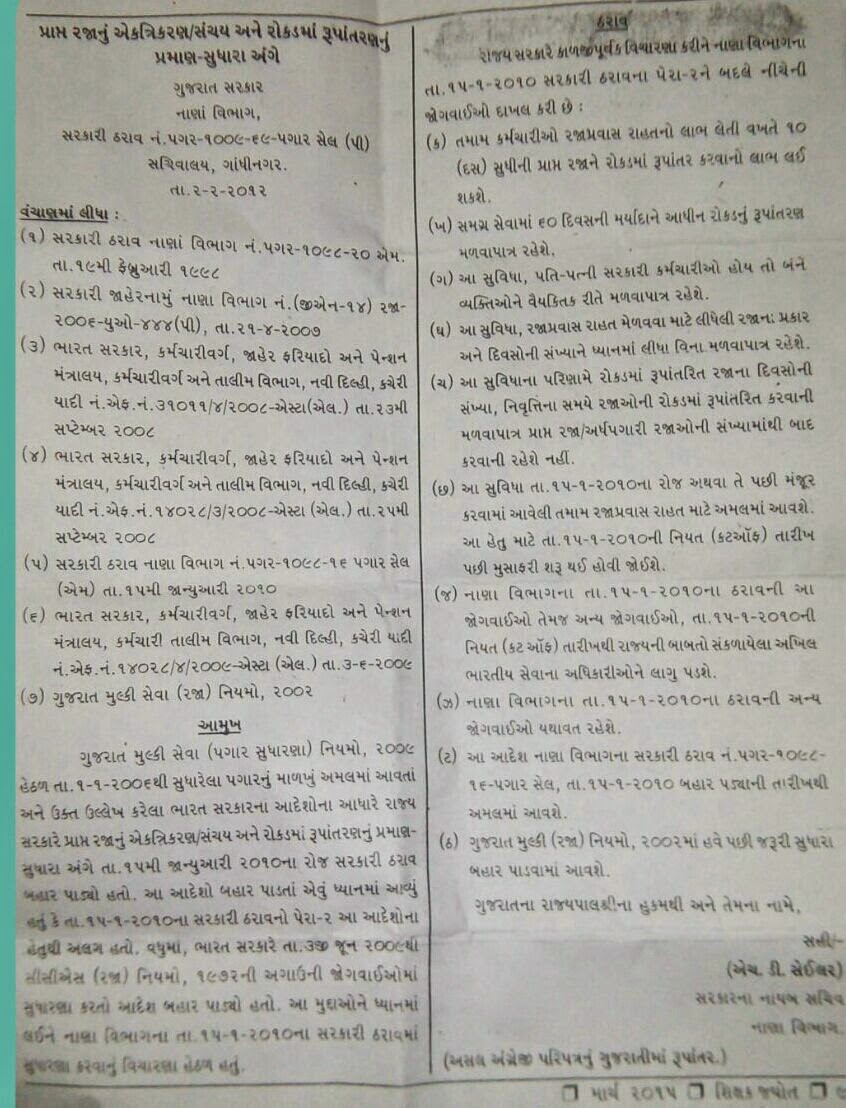 પ્રાપ્ત રજાનું એકત્રિકરણ/સંચય અને રોકડમાં રૂપાંતરણનું
પ્રમાણ-સુધારા અંગે
ગુજરાત સરકાર
નાણાં વિભાગ,
સરકારી ઠરાવ નં.પગર-૧૦૦૯-૬૯-પગાર સેલ (પી)
સચિવાલય, ગાંધીનગર.
તા.૨-૨-૨૦૧૨
વંચાણમાં લીધા :
(૧) સરકારી ઠરાવ નાણાં વિભાગ નં.પગર-૧૦૯૮-૨૦ એમ.
તા.૧૯મી ફેબ્રુઆરી ૧૯૯૮
(૨) સરકારી જાહેરનામું નાણા વિભાગ નં.(જીએન-૧૪) રજા-
૨૦૦૬-યુઓ-૪૪૪(પી), તા.૨૧-૪-૨૦૦૭
(૩) ભારત સરકાર, કર્મચારીવર્ગ, જાહેર ફરિયાદો અને પેન્શન
મંત્રાલય, કર્મચારીવર્ગ અને તાલીમ વિભાગ, નવી દિલ્હી, કચેરી
યાદી નં.એફ.નં.૩૧૦૧૧/૪/૨૦૦૮-એસ્ટા(એલ.) તા.૨૩મી
સપ્ટેમ્બર ૨૦૦૮
(૪) ભારત સરકાર, કર્મચારીવર્ગ, જાહેર ફરિયાદો અને પેન્શન
મંત્રાલય, કર્મચારીવર્ગ અને તાલીમ વિભાગ, નવી દિલ્હી, કચેરી
યાદી નં.એફ.નં.૧૪૦૨૮/૩/૨૦૦૮-એસ્ટા (એલ.) તા.૨૫મી
સપ્ટેમ્બર ૨૦૦૮
(૫) સરકારી ઠરાવ નાણા વિભાગ નં.પગર-૧૦૯૮-૧૬ પગાર સેલ
(એમ) તા.૧૫મી જાન્યુઆરી ૨૦૧૦
(૬) ભારત સરકાર, કર્મચારીવર્ગ, જાહેર ફરિયાદો અને પેન્શન
મંત્રાલય, કર્મચારી તાલીમ વિભાગ, નવી દિલ્હી, કચેરી યાદી
નં.એફ.નં.૧૪૦૨૮/૪/૨૦૦૯-એસ્ટા (એલ.) તા.૩-૬-૨૦૦૯
(૭) ગુજરાત મુલ્કી સેવા (રજા) નિયમો, ૨૦૦૨
આમુખ
ગુજરાત મુલ્કી સેવા (પગાર સુધારણા) નિયમો, ૨૦૦૯
હેઠળ તા.૧-૧-૨૦૦૬થી સુધારેલા પગારનું માળખું અમલમાં આવતાં
અને ઉક્ત ઉલ્લેખ કરેલા ભારત સરકારના આદેશોના આધારે રાજ્ય
સરકારે પ્રાપ્ત રજાનું એકત્રિકરણ/સંચય અને રોકડમાં રૂપાંતરણનું પ્રમાણ-
સુધારા અંગે તા.૧૫મી જાન્યુઆરી ૨૦૧૦ના રોજ સરકારી ઠરાવ
બહાર પાડ્યો હતો. આ આદેશો બહાર પાડતાં એવું ધ્યાનમાં આવ્યું
હતું કે તા.૧૫-૧-૨૦૧૦ના સરકારી ઠરાવનો પેરા-૨ આ આદેશોના
હેતુથી અલગ હતો. વધુમાં, ભારત સરકારે તા.૩જી જૂન ૨૦૦૯થી
સીસીએસ (રજા) નિયમો, ૧૯૭૨ની અગાઉની જોગવાઈઓમાં
સુધારણા કરતો આદેશ બહાર પાડ્યો હતો. આ મુદ્દાઓને ધ્યાનમાં
લઈને નાણા વિભાગના તા.૧૫-૧-૨૦૧૦ના સરકારી ઠરાવમાં
સુધારણા કરવાનું વિચારણા હેઠળ હતું.
ઠરાવ
રાજ્ય સરકારે કાળજીપૂર્વક વિચારણા કરીને નાણા વિભાગના
તા.૧૫-૧-૨૦૧૦ સરકારી ઠરાવના પેરા-૨ને બદલે નીચેની
જોગવાઈઓ દાખલ કરી છે :
(ક) તમામ કર્મચારીઓ રજાપ્રવાસ રાહતનો લાભ લેતી વખતે ૧૦
(દસ) સુધીની પ્રાપ્ત રજાને રોકડમાં રૂપાંતર કરવાનો લાભ લઈ
શકશે.
(ખ) સમગ્ર સેવામાં ૬૦ દિવસની મર્યાદાને આધીન રોકડનું રૂપાંતરણ
મળવાપાત્ર રહેશે.
(ગ) આ સુવિધા, પતિ-પત્ની સરકારી કર્મચારીઓ હોય તો બંને
વ્યક્તિઓને વૈયક્તિક રીતે મળવાપાત્ર રહેશે.
(ઘ) આ સુવિધા, રજાપ્રવાસ રાહત મેળવવા માટે લીધેલી રજાના પ્રકાર
અને દિવસોની સંખ્યાને ધ્યાનમાં લીધા વિના મળવાપાત્ર રહેશે.
(ચ) આ સુવિધાના પરિણામે રોકડમાં રૂપાંતરિત રજાના દિવસોની
સંખ્યા, નિવૃત્તિના સમયે રજાઓની રોકડમાં રૂપાંતરિત કરવાની
મળવાપાત્ર પ્રાપ્ત રજા/અર્ધપગારી રજાઓની સંખ્યામાંથી બાદ
કરવાની રહેશે નહીં.
(છ) આ સુવિધા તા.૧૫-૧-૨૦૧૦ના રોજ અથવા તે પછી મંજૂર
કરવામાં આવેલી તમામ રજાપ્રવાસ રાહત માટે અમલમાં આવશે.
આ હેતુ માટે તા.૧૫-૧-૨૦૧૦ની નિયત (કટઑફ) તારીખ
પછી મુસાફરી શરૂ થઈ હોવી જોઈશે.
(જ) નાણા વિભાગના તા.૧૫-૧-૨૦૧૦ના ઠરાવની આ
જોગવાઈઓ તેમજ અન્ય જોગવાઈઓ, તા.૧૫-૧-૨૦૧૦ની
નિયત (કટ ઑફ) તારીખથી રાજ્યની બાબતો સંકળાયેલા અખિલ
ભારતીય સેવાના અધિકારીઓને લાગુ પડશે.
(ઝ) નાણા વિભાગના તા.૧૫-૧-૨૦૧૦ના ઠરાવની અન્ય
જોગવાઈઓ યથાવત રહેશે.
(ટ) આ આદેશ નાણા વિભાગના સરકારી ઠરાવ નં.પગર-૧૦૯૮-
૧૬-પગાર સેલ, તા.૧૫-૧-૨૦૧૦ બહાર પડ્યાની તારીખથી
અમલમાં આવશે.
(ઠ) ગુજરાત મુલ્કી (રજા) નિયમો, ૨૦૦૨માં હવે પછી જરૂરી સુધારા
બહાર પાડવામાં આવશે.
ગુજરાતના રાજ્યપાલશ્રીના હુકમથી અને તેમના નામે,
સહી/-
(એચ. ડી. સેઈલર)
સરકારના નાયબ સચિવ
નાણા વિભાગ.
(અસલ અંગ્રેજી પરિપત્રનું ગુજરાતીમાં રૂપાંતર.)
માર્ચ ૨૦૧૫ શિક્ષક જ્યોત